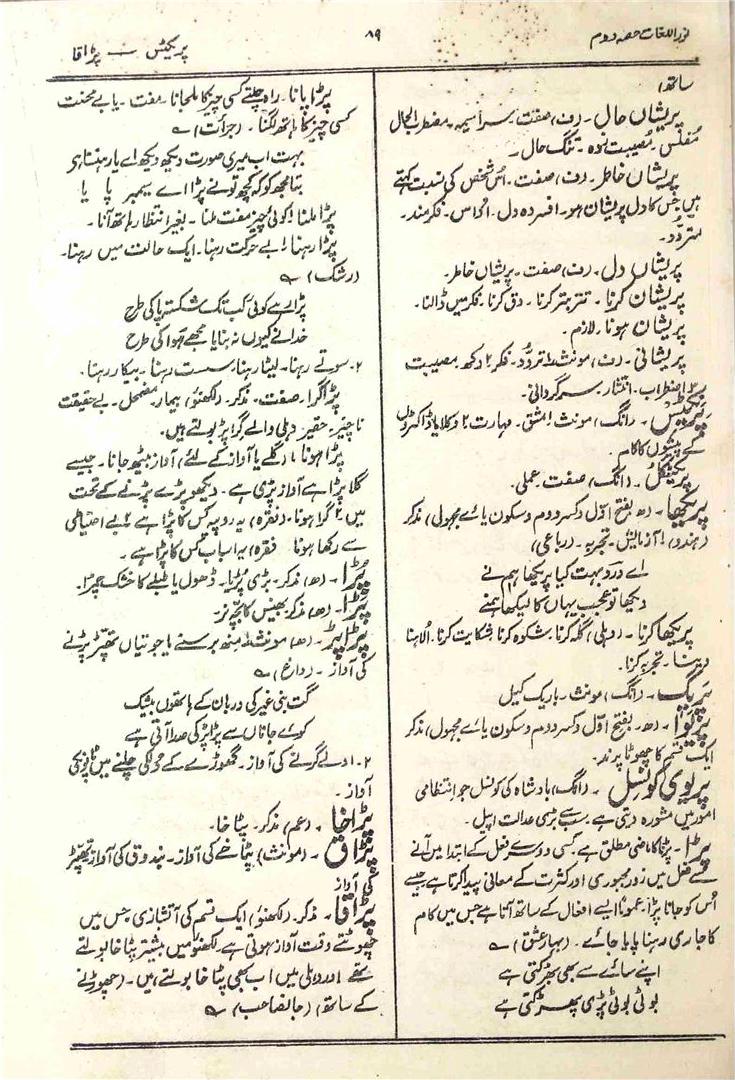 نور اللغات حصہ دوم
۸۹
پریکٹس — پڑاقا
ساتھ)
پریشاں حال ۔ (ف) صفت۔ سراسیمہ ۔ مضطرب الحال
مُفلس۔ مُصیبت زدہ ۔ تنگ حال ۔
پریشاں خاطر ۔ (ف) صفت ۔ اُس شخص کی نسبت کہتے
ہیں جس کا دل پریشان ہو۔ افسردہ دل ۔ اُداس ۔ فکرمند۔
متردّد۔
پریشاں دل ۔ (ف) صفت ۔ پریشاں خاطر۔
پریشان کرنا ۔ تتر بتر کرنا ۔ دق کرنا ۔ فکر میں ڈالنا ۔
پریشان ہونا ۔ لازم ۔
پریشانی ۔ (ف) مونث ۱ تردُّد۔ فکر ۲ دکھ۔ مصیبت
۳ اضطراب۔ انتشار۔ سرگردانی ۔
پریکٹس ۔ (انگ) مونث ۱ مشق ۔ مہارت ۲ وکلا یا ڈاکٹروں
کے پیشوں کا کام ۔
پریکٹکل ۔ (انگ) صفت۔ عملی۔
پریکھا ۔ (ھ۔ بفتح اوّل و کسر دوم و سکون یائے مجہول) مذکر
(ہندو) ۱ آزمایش۔ تجربہ ۔ (رباعی)
اے درد بہت کیا پریکھا ہم نے
دیکھا تو عجب یہاں کا لیکھا ہمنے
پریکھا کرنا ۔ (دہلی) گلہ کرنا۔ شکوہ کرنا۔ شکایت کرنا۔ اُلاہنا
دینا ۔ تجربہ کرنا۔
پریگ ۔ (انگ) مونث۔ باریک کیل
پریوا ۔ (ھ۔ بفتح اوّل و کسر دوم و سکون یائے مجہول) مذکر
ایک قسم کا چھوٹا پرند۔
پریوی کونسل ۔ (انگ) بادشاہ کی کونسل جو انتظامی
امور میں مشورہ دیتی ہے۔ سب سے بڑی عدالت اپیل ۔
پڑا ۔ پڑنا کا ماضی مطلق ہے۔ کسی دوسرے فعل کے ابتدا میں آنے
سے فعل میں زور مجبوری اور کثرت کے معانی پیدا کرتا ہے جیسے
اُس کو جانا پڑا۔ عموماً ایسے افعال کے ساتھ آتا ہے جس میں کام
کا جاری رہنا پایا جائے ۔ (بہار عشق) ؎
اپنے سائے سے بھی بھڑکتی ہے
بوٹی بوٹی پڑی پھڑکتی ہے
پڑا پانا ۔ راہ چلتے کسی چیز کا ملجانا ۔ مفت ۔ یا بے محنت
کسی چیز کا ہاتھ لگنا ۔ (جرأت) ؎
بہت اب میری صورت دیکھ دیکھ اے یار ہنستا ہی
بتا مجھ کو کہ کچھ تونے پڑا اے سیمبر پا یا
پڑا ملنا ۱ کوئی چیز مفت ملنا ۔ بغیر انتظار ہاتھ آنا ۔
پڑا رہنا ۱ بے حرکت رہنا ۔ ایک حالت میں رہنا۔
(رشک) ؎
پڑا رہے کوئی کب تک شکستہ پا کی طرح
خدا نے کیوں نہ بنایا مجھے ہوا کی طرح
۲۔ سوتے رہنا ۔ لیٹا رہنا۔ سست رہنا ۔ بیکار رہنا۔
پڑا گرا ۔ صفت ۔ مذکر ۔ (لکھنؤ) بیمار۔ مضمحل ۔ بے حقیقت
ناچیز۔ حقیر۔ دہلی والے گرا پڑ بولتے ہیں۔
پڑا ہونا ۱ (گلے یا آواز کے لئے) آواز بیٹھ جانا ۔ جیسے
گلا پڑا ہے آواز پڑی ہے ۔ دیکھو پڑے پڑنے کے تحت
میں ۲ گرا ہونا۔ (فقرہ) یہ روپیہ کس کا پڑا ہے ۳ بے احتیاطی
سے رکھا ہونا (فقرہ) یہ اسباب کس کا پڑا ہے ۔
پُڑا ۔ (ھ) مذکر۔ بڑی پُڑیا۔ ڈھول یا طبلے کا خشک چمڑا۔
پڑّا ۔ (ھ) مذکر بھینس کا بچہ نر۔
پڑاپڑ ۔ (ھ) مونث ۱ مینھ برسنے یا جوتیاں تھپڑ پڑنے
کی آواز ۔ (داغ) ؎
گت بنی غیر کی درباں کے ہاتھوں بیشک
کوئے جاناں سے پڑا پڑ کی صدا آتی ہے
۲۔ اولے گرنے کی آواز۔ گھوڑے کے دُلکی چلنے میں ٹاپونکی
آواز ۔
پڑاخا ۔ (عم) مذکر۔ پٹاخا۔
پڑاق ۔ (مونث) پٹاخے کی آواز۔ بندوق کی آواز تھپڑ
کی آواز
پڑاقا ۔ مذکر۔ (لکھنؤ) ایک قسم کی آتشبازی جس میں
چھوٹتے وقت آواز ہوتی ہے۔ لکھنؤ میں بیشتر پٹاخا بولتے
تھے اور دہلی میں اب بھی پٹاخا بولتے ہیں ۔ (چھوڑنے
کے ساتھ) (جانصاحب) ؎